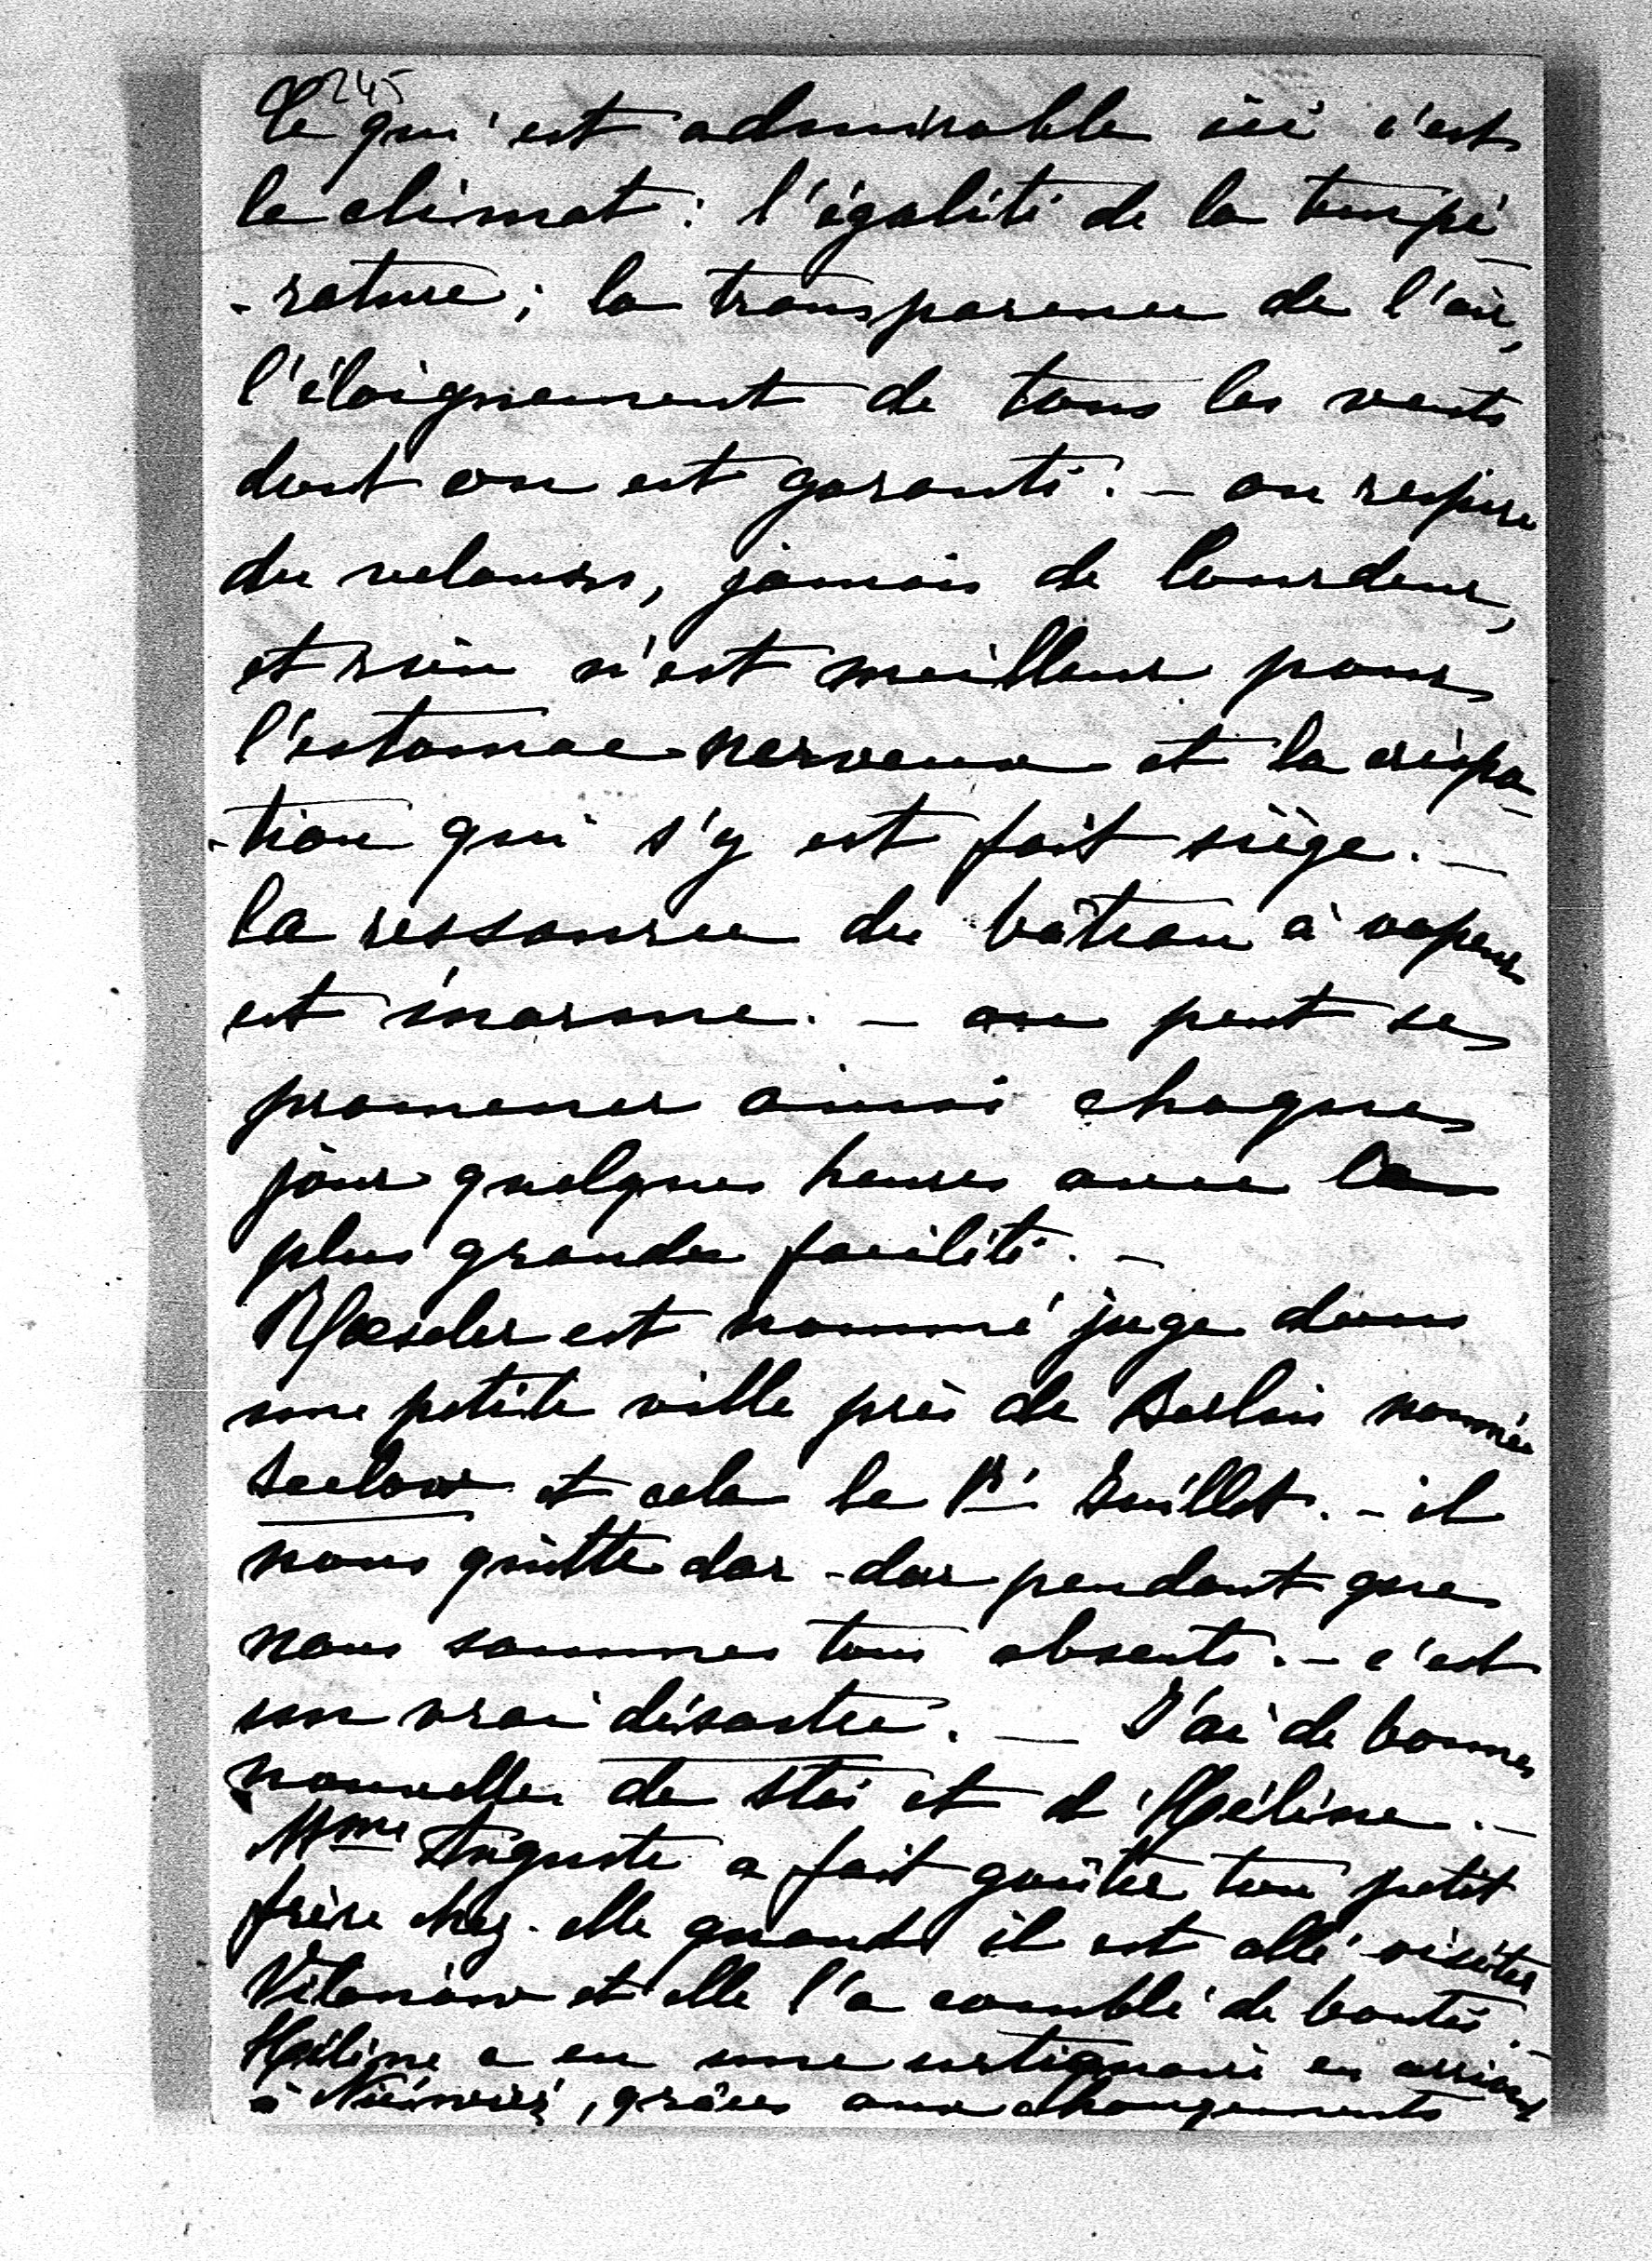 245
Ce qui est admirable ici c'est
le climat : l'égalité de la tempé
-rature ; la transparence de l'air,
l'éloignement de tous les vents
dont on est garanti. - on respire
du velours, jamais de lourdeur,
et rien n'est meilleur pour
l'estomac nerveux et la crispa-
-tion qui s'y est fait siège. -
la ressource du bâteau à vapeur
est énorme. - on peut se
promener ainsi chaque
jour quelques heures avec la
plus grande facilité. -
est nommé juge dans
une petite ville près de Berlin nommée
Seelow et cela le 1er Juillet. - il
nous quitte dar-dar pendant que
nous sommes tous absents. - c'est
un vrai désastre. - J'ai de bonnes
nouvelles de Stas et d'Hélène. -
Mme Auguste a fait goûter ton petit
frère chez-elle quand il est allé visiter
Vilanow et elle l'a comblé de bontés.
Hélène a eu une en arrivant
à , grâces aux changements